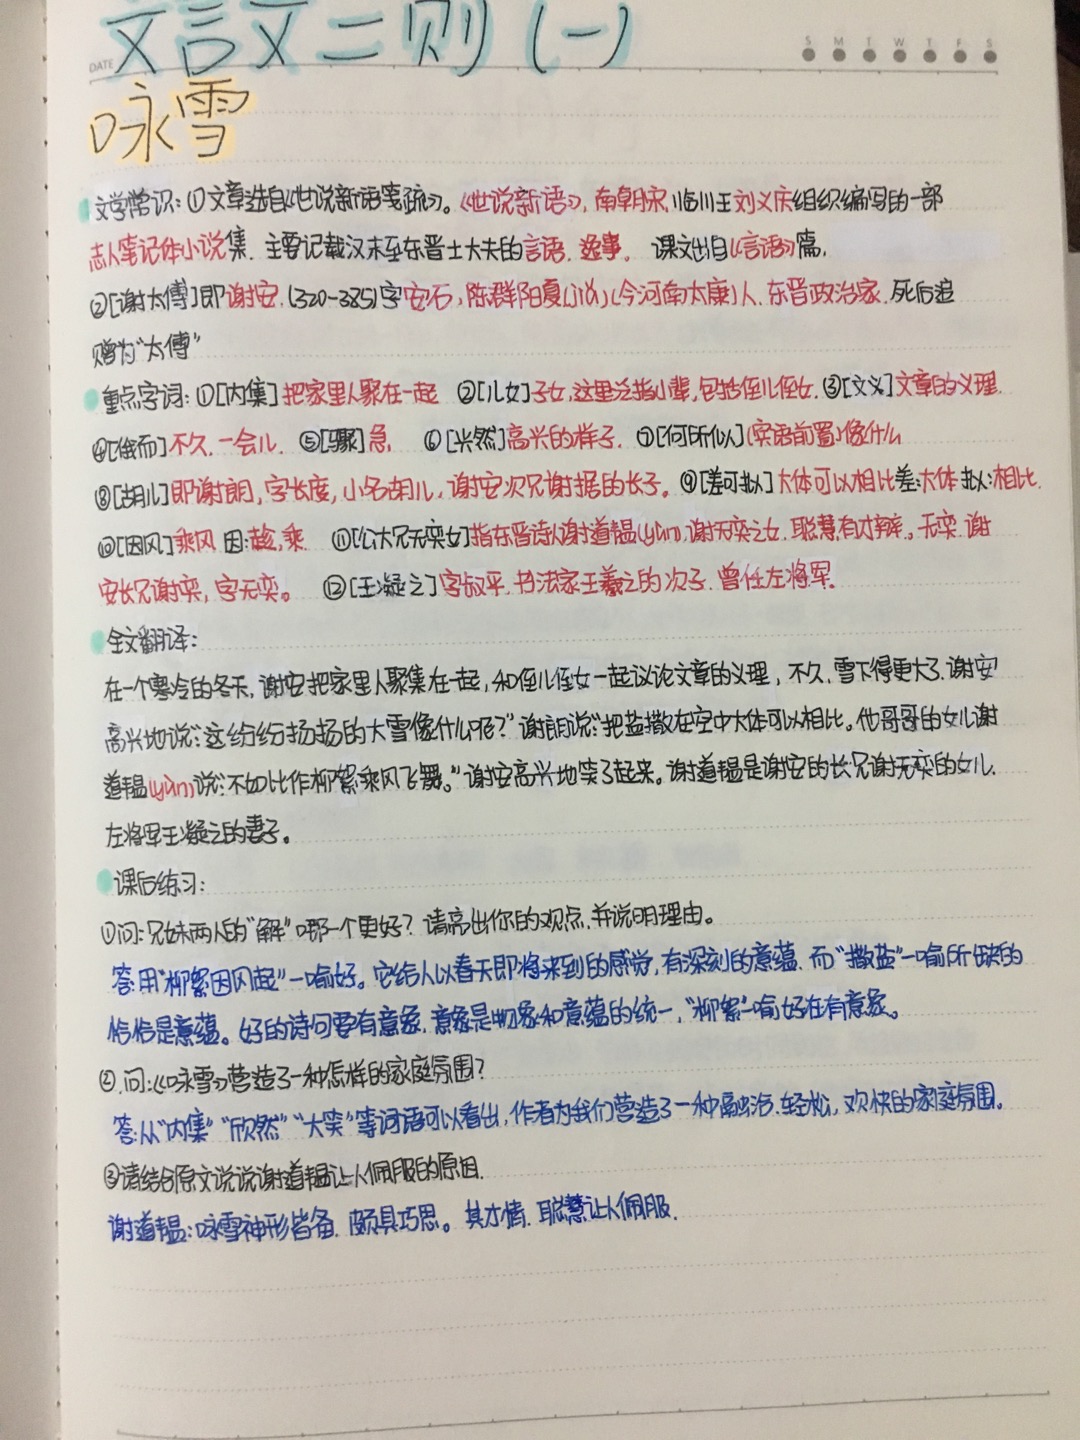 文言文二则(一)
DATE
S M T W T F S
咏雪
文学常识:①文章选自《世说新语笺疏》。《世说新语》,南朝宋临川王刘义庆组织编写的一部
志人笔记体小说集.主要记载汉末至东晋士大夫的言语.逸事。课文出自《言语》篇.
②[谢太傅]即谢安.(320-385)字安石,陈郡阳夏(jiǎ)(今河南太康)人.东晋政治家.死后追
赠为“太傅”
重点字词:①[内集]把家里人聚在一起 ②[儿女]子女,这里泛指小辈,包括侄儿侄女.③[文义]文章的义理.
④[俄而]不久.一会儿. ⑤[骤]急, ⑥[欣然]高兴的样子. ⑦[何所似](宾语前置)像什么
⑧[胡儿]即谢朗,字长度,小名胡儿.谢安次兄谢据的长子。⑨[差可拟]大体可以相比差:大体 拟:相比.
⑩[因风]乘风.因:趁,乘 ⑪[公大兄无奕女]指东晋诗人谢道韫(yùn).谢无奕之女.聪慧有才辩。无奕.谢
安长兄谢奕,字无奕。 ⑫[王凝之]字叔平.书法家王羲之的次子.曾任左将军.
全文翻译:
在一个寒冷的冬天,谢安把家里人聚集在一起,和侄儿侄女一起议论文章的义理,不久,雪下得更大了.谢安
高兴地说:“这纷纷扬扬的大雪像什么呢?”谢朗说:“把盐撒在空中大体可以相比。他哥哥的女儿谢
道韫(yùn)说:“不如比作柳絮乘风飞舞。”谢安高兴地笑了起来。谢道韫是谢安的长兄谢无奕的女儿.
左将军王凝之的妻子。
课后练习:
①问:兄妹两人的“解”哪一个更好?请亮出你的观点.并说明理由。
答:用“柳絮因风起”一喻好。它给人以春天即将来到的感觉,有深刻的意蕴.而“撒盐”一喻所缺的
恰恰是意蕴。好的诗句要有意象.意象是物象和意蕴的统一,“柳絮”一喻好在有意象。
②.问:《咏雪》营造了一种怎样的家庭氛围?
答:从“内集”“欣然”“大笑”等词语可以看出,作者为我们营造了一种融洽.轻松,欢快的家庭氛围。
③请结合原文说说谢道韫让人佩服的原因.
谢道韫:咏雪神形皆备.颇具巧思。其才情.聪慧让人佩服.